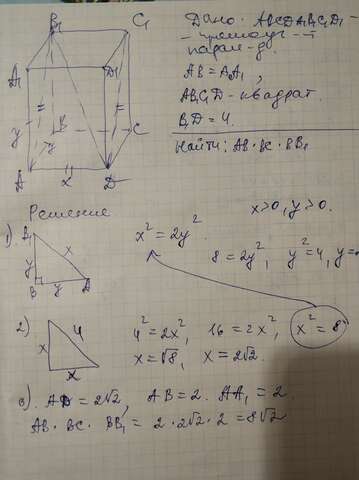 B₁ C₁
A₁ D₁
y B C
y
A x D
Дано: ABCDA₁B₁C₁D₁ –
– прямоуг-й
парал-д.
AB = AA₁,
AB₁C₁D – квадрат.
B₁D = 4.
Найти: AB · BC · BB₁
Решение
x>0, y>0.
1) A₁ x y B y A
x² = 2y².
8 = 2y², y² = 4, y =
2) x 4 x
4² = 2x², 16 = 2x², x² = 8
x = √8, x = 2√2.
3). AD = 2√2, AB = 2. AA₁ = 2.
AB · BC · BB₁ = 2 · 2√2 · 2 = 8√2